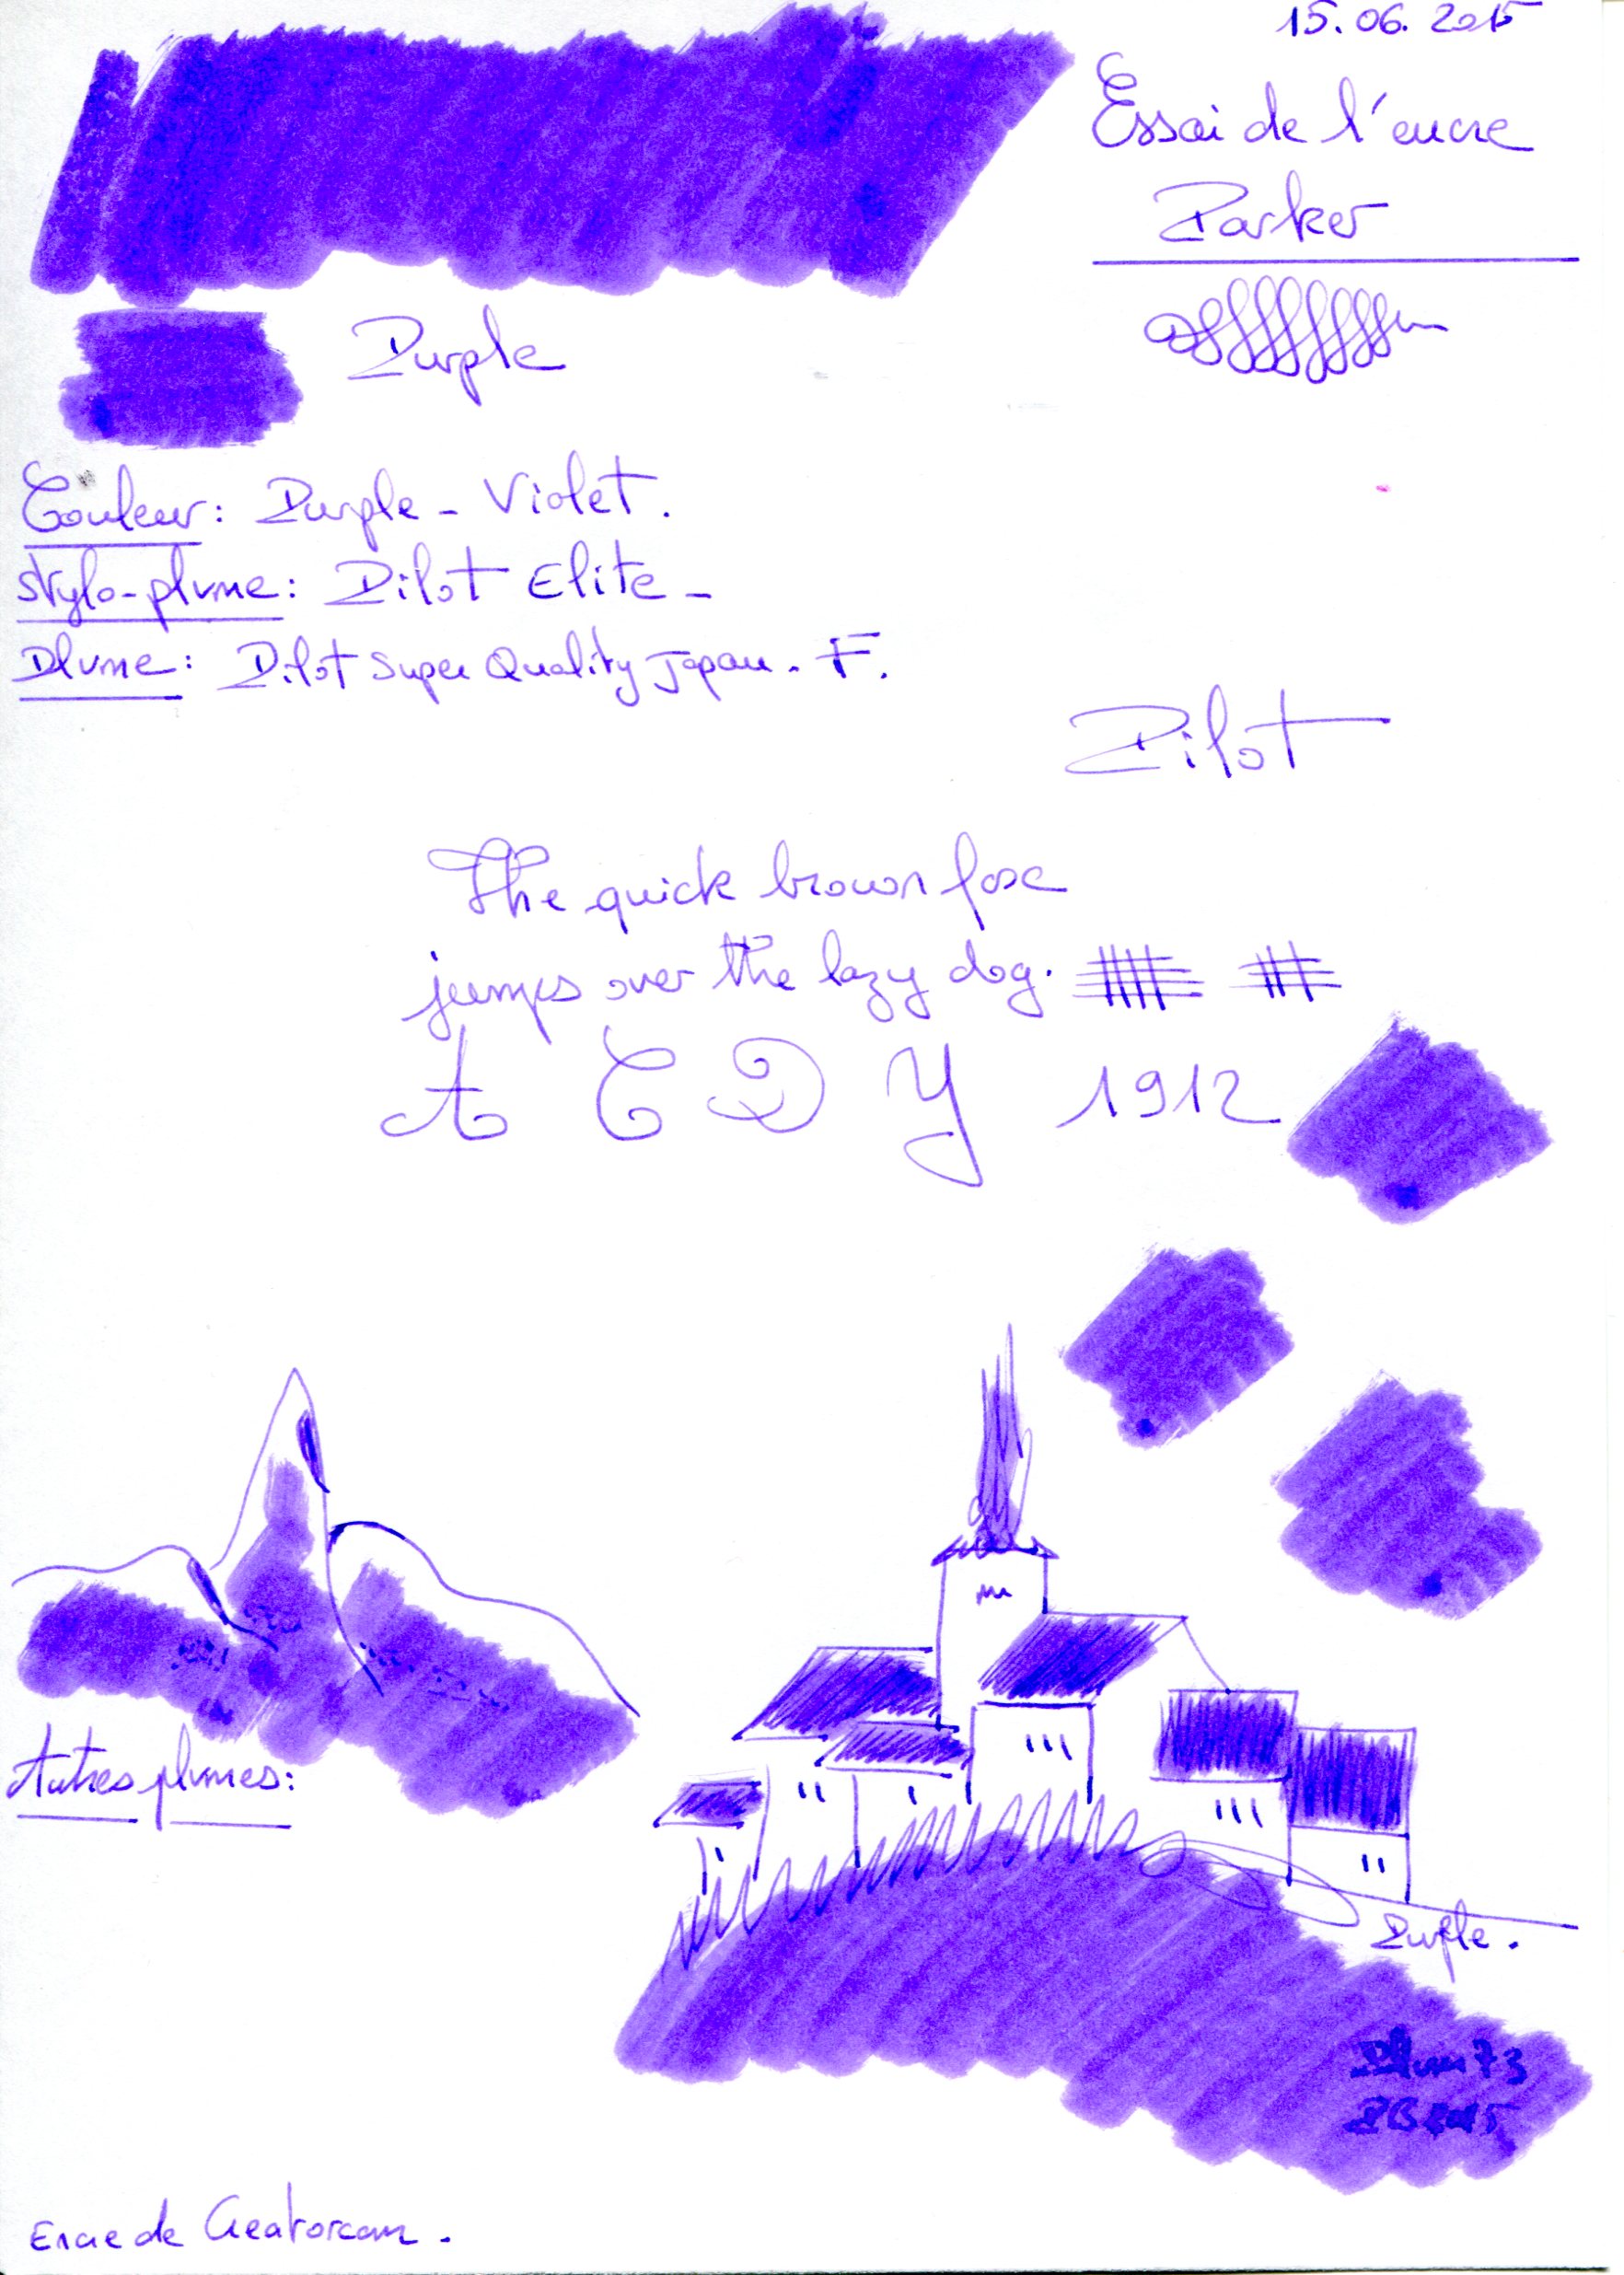 15.06.2015
Essai de l'encre
Parker
Purple
Couleur: Purple - Violet.
Stylo-plume: Pilot Elite -
Plume: Pilot Super Quality Japan. F.
Pilot
The quick brown fox
jumps over the lazy dog.
A C D Y 1912
Autres plumes:
Purple.
PB 2015
Encre de